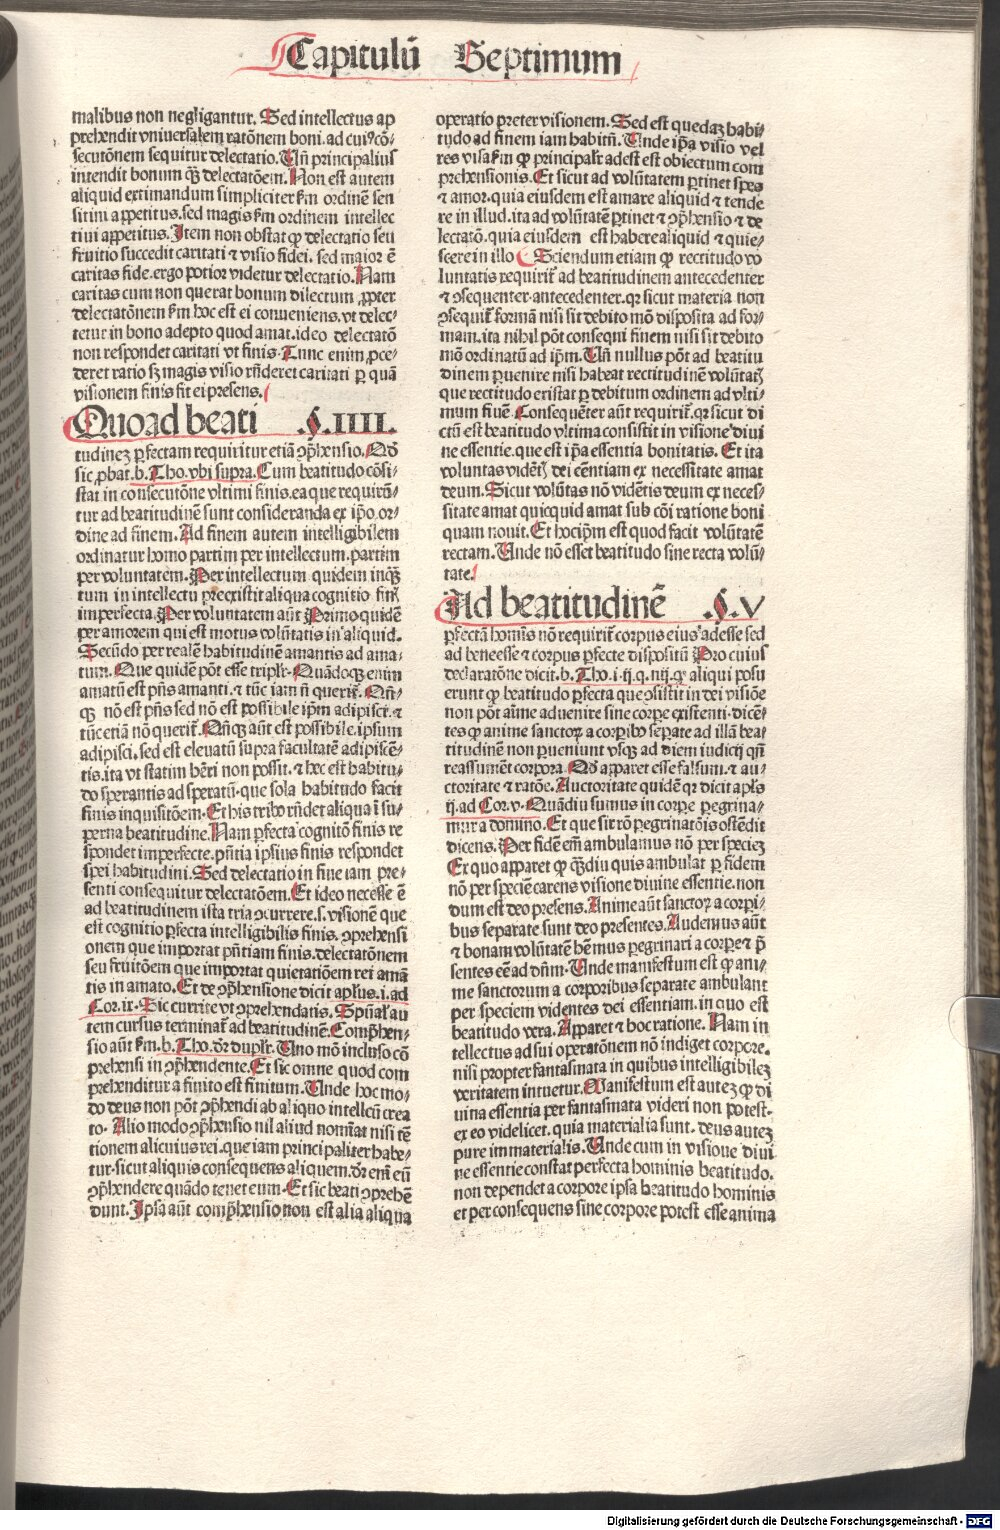 Capitulū Septimum
malibus non negligantur. Sed intellectus ap
prehendit vniuersalem ratōnem boni. ad cuiꝰ cō-
secutōnem sequitur delectatio. Uñ principalius
intendit bonum qꝫ delectatōem. Non est autem
aliquid extimandum simpliciter ẜm ordinē sen
sitiui appetitus. sed magis ẜm ordinem intellec
tiui appetitus. Item non obstat ꝙ delectatio seu
fruitio succedit caritati ⁊ visio fidei. sed maior ē
caritas fide. ergo potior videtur delectatio. Nam
caritas cum non querat bonum dilectum ꝓpter
delectatōnem ẜm hoc est ei conueniens. vt delec-
tetur in bono adepto quod amat. ideo delectatō
non respondet caritati vt finis. Tunc enim ꝓce-
deret ratio sꝫ magis visio rñderet caritati ꝑ quā
visionem finis fit ei presens.
Quoad beati .§.IIII.
tudineꝫ ꝑfectam requiritur etiā ꝯp̄hensio. Qđ
sic ꝓbat. b. Tho. vbi supra. Cum beatitudo cōsi-
stat in consecutōne vltimi finis. ea que requirū-
tur ad beatitudinē sunt consideranda ex ip̄o or-
dine ad finem. Ad finem autem intelligibilem
ordinatur homo partim per intellectum. partim
per voluntatem. Per intellectum quidem inqꝫ
tum in intellectu preexistit aliqua cognitio finꝭ
imperfecta. Per voluntatem aūt Primo quidē
per amorem qui est motus volūtatis in aliquid.
Secūdo per realē habitudinē amantis ad ama-
tum. Que quidē pōt esse triplr̄. Quādoqꝫ enim
amatū est p̄ns amanti. ⁊ tūc iam ñ querit̄. Qñ-
qꝫ nō est p̄ns sed nō est possibile ip̄m adipisci. ⁊
tūc etiā nō querit̄. Qñqꝫ aūt est possibile. ipsum
adipisci. sed est eleuatū supra facultatē adipiscē-
tis. ita vt statim hēri non possit. ⁊ hoc est habitu-
do sperantis ad speratū. que sola habitudo facit
finis inquisitōem. Et his tribꝰ rñdet aliqua ī su-
perna beatitudine. Nam ꝑfecta cognitō finis re
spondet imperfecte. p̄ntia ipsius finis respondet
spei habitudini. Sed delectatio in fine iam pre-
senti consequitur delectatōem. Et ideo necesse ē
ad beatitudinem ista tria ꝯcurrere. s. visionē que
est cognitio ꝑfecta intelligibilis finis. ꝯprehensi
onem que importat p̄ntiam finis. delectatōnem
seu fruitōem que importat quietatiōem rei amā
tis in amato. Et de ꝯp̄hensione dicit apl̄us. i. ad
Cor. ix. Sic currite vt ꝯprehendatis. Spūal' au
tem cursus terminat̄ ad beatitudinē. Comp̄hen-
sio aūt ẜm. b. Tho. dr̄ duplr̄. Uno mō incluso cō
prehensi in ꝯp̄hendente. Et sic omne quod com
prehenditur a finito est finitum. Unde hoc mo-
do deus non pōt ꝯp̄hendi ab aliquo intellcū crea
to. Alio modo ꝯp̄hensio nil aliud nomīat nisi tē
tionem alicuius rei. que iam principaliter habe-
tur. sicut aliquis consequens aliquem. dr̄ em̄ eū
ꝯp̄hendere quādo tenet eum. Et sic beati ꝯprehē
dunt. Ipsa aūt comp̄hensio non est alia aliqua
operatio preter visionem. Sed est quedaꝫ habi-
tudo ad finem iam habitū. Unde ip̄a visio vel
res visa ẜm ꝙ principalr̄ adest est obiectum com
prehensionis. Et sicut ad volūtatem ꝑtinet spes
⁊ amor. quia eiusdem est amare aliquid ⁊ tende
re in illud. ita ad volūtatē ꝑtinet ⁊ ꝯp̄hensio ⁊ de
lectatō. quia eiusdem est habere aliquid ⁊ quie-
scere in illo Sciendum etiam ꝙ rectitudo vo
luntatis requirit̄ ad beatitudinem antecedenter
⁊ ꝯsequenter. antecedenter. qꝛ sicut materia non
ꝯsequit̄ formā nisi sit debito mō disposita ad for-
mam. ita nihil pōt consequi finem nisi sit debito
mō ordinatū ad ip̄m. Uñ nullus pōt ad beatitu
dinem ꝑuenire nisi habeat rectitudinē volūtatꝭ
que rectitudo existat ꝑ debitum ordinem ad vlti-
mum finē. Consequēter aūt requirit̄. qꝛ sicut di
ctū est beatitudo vltima consistit in visione diui
ne essentie. que est ip̄a essentia bonitatis. Et ita
voluntas vidētꝭ dei eēntiam ex necessitate amat
deum. Sicut volūtas nō vidētis deum ex neces-
sitate amat quicquid amat sub cōi ratione boni
quam nouit. Et hoc ip̄m est quod facit volūtatē
rectam. Unde nō esset beatitudo sine recta volū-
tate.
Ad beatitudinē .§.V
ꝑfectā homīs nō requirit̄ corpus eius adesse sed
ad bene esse ⁊ corpus ꝑfecte dispositū Pro cuius
declaratōne dicit. b. Tho. i. ij. q. iiij. qꝙ aliqui posu
erunt ꝙ beatitudo ꝑfecta que ꝯsistit in dei visiōe
non pōt aīme aduenire sine corpe existenti. dicē-
tes ꝙ anime sanctoꝝ a corpibꝰ sepate ad illā bea-
titudinē non ꝑueniunt vsqꝫ ad diem iudicij qñ
reassument corpora. Qđ apparet esse falsum. ⁊ au-
ctoritate ⁊ ratōe. Auctoritate quidē qꝛ dicit apl̄s
ij. ad Cor. v. Quādiu sumus in corpe peregrina-
mur a domino. Et que sit rō ꝑegrinatōis ostēdit
dicens. Per fidē em̄ ambulamus nō per specieꝫ
Ex quo apparet ꝙ qꝫdiu quis ambulat ꝑ fidem
nō per speciē carens visione diuine essentie. non
dum est deo presens. Anime aūt sanctoꝝ a corpi-
bus separate sunt deo presentes. Audemus aūt
⁊ bonam volūtatē hēmus peregrinari a corpe ⁊ p̄
sentes eē ad dn̄m. Unde manifestum est ꝙ ani-
me sanctorum a corporibus separate ambulant
per speciem videntes dei essentiam. in quo est
beatitudo vera. Apparet ⁊ hoc ratione. Nam in
tellectus ad sui operatōnem nō indiget corpore.
nisi propter fantasmata in quibus intelligibileꝫ
veritatem intuetur. Manifestum est auteꝫ ꝙ di
uina essentia per fantasmata videri non potest.
ex eo videlicet. quia materialia sunt. deus auteꝫ
pure immaterialis. Unde cum in visione diui
ne essentie constat perfecta hominis beatitudo.
non dependet a corpore ipsa beatitudo hominis
et per consequens sine corpore potest esse anima
Digitalisierung gefördert durch die Deutsche Forschungsgemeinschaft - DFG